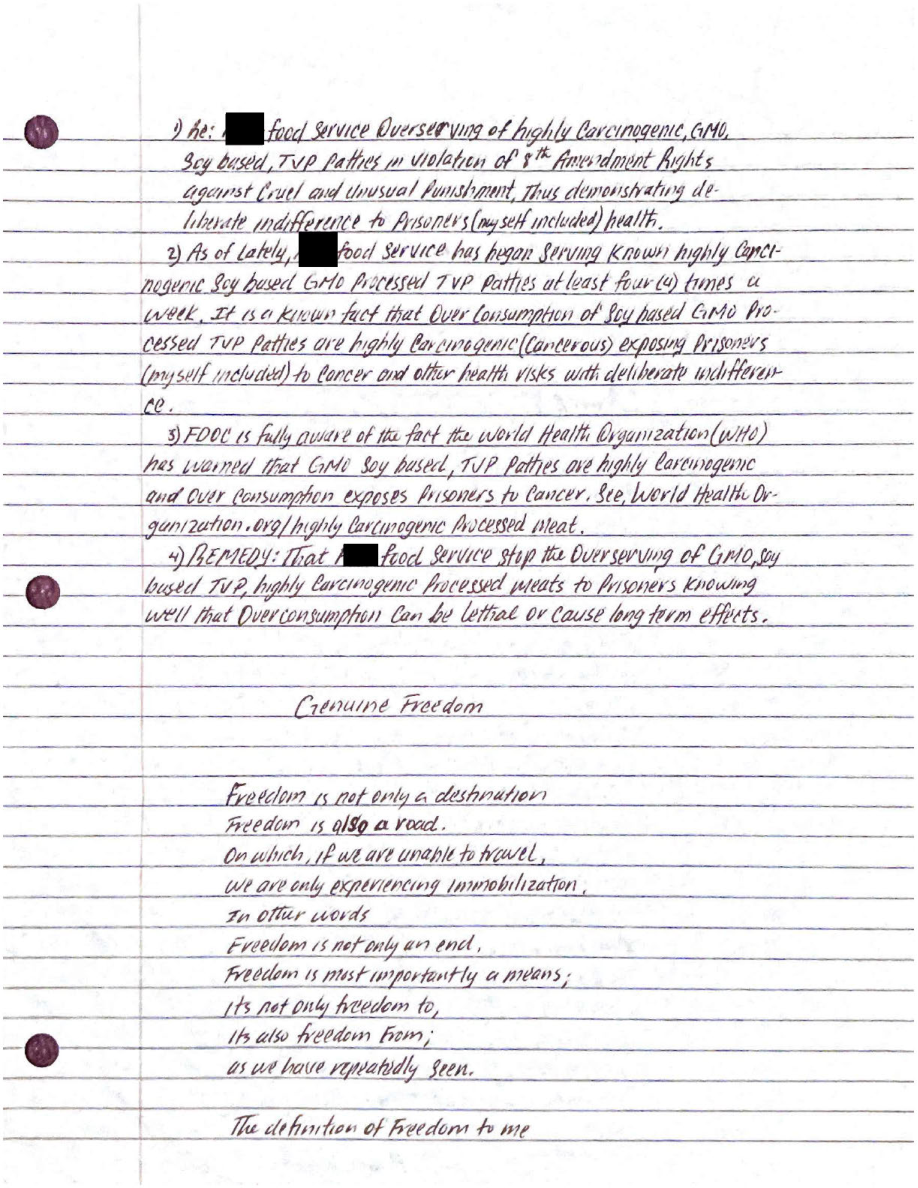 1) Re: food Service Overserving of highly Carcinogenic, GMO,
Soy based, TVP Patties in violation of 8th Amendment Rights
against Cruel and Unusual Punishment, Thus demonstrating de-
liberate indifference to Prisoners (myself included) health.
2) As of Lately, food Service has began Serving Known highly Carci-
nogenic Soy based GMO Processed TVP Patties at least four (4) times a
week. It is a Known fact that Over Consumption of Soy based GMO Pro-
cessed TVP Patties are highly Carcinogenic (Cancerous) exposing Prisoners
(myself included) to Cancer and other health risks with deliberate indifferen-
ce.
3) FDOC is fully aware of the fact the World Health Organization (WHO)
has warned that GMO Soy based, TVP Patties are highly Carcinogenic
and Over Consumption exposes Prisoners to Cancer. See, World Health Or-
ganization.org/highly Carcinogenic Processed meat.
4) REMEDY: That food Service stop the Overserving of GMO, Soy
based TVP, highly Carcinogenic Processed meats to Prisoners Knowing
well that Overconsumption Can be lethal or cause long term effects.
Genuine Freedom
Freedom is not only a destination
Freedom is also a road.
On which, if we are unable to travel,
we are only experiencing immobilization.
In other words
Freedom is not only an end,
Freedom is most importantly a means;
its not only freedom to,
its also freedom From;
as we have repeatedly seen.
The definition of Freedom to me